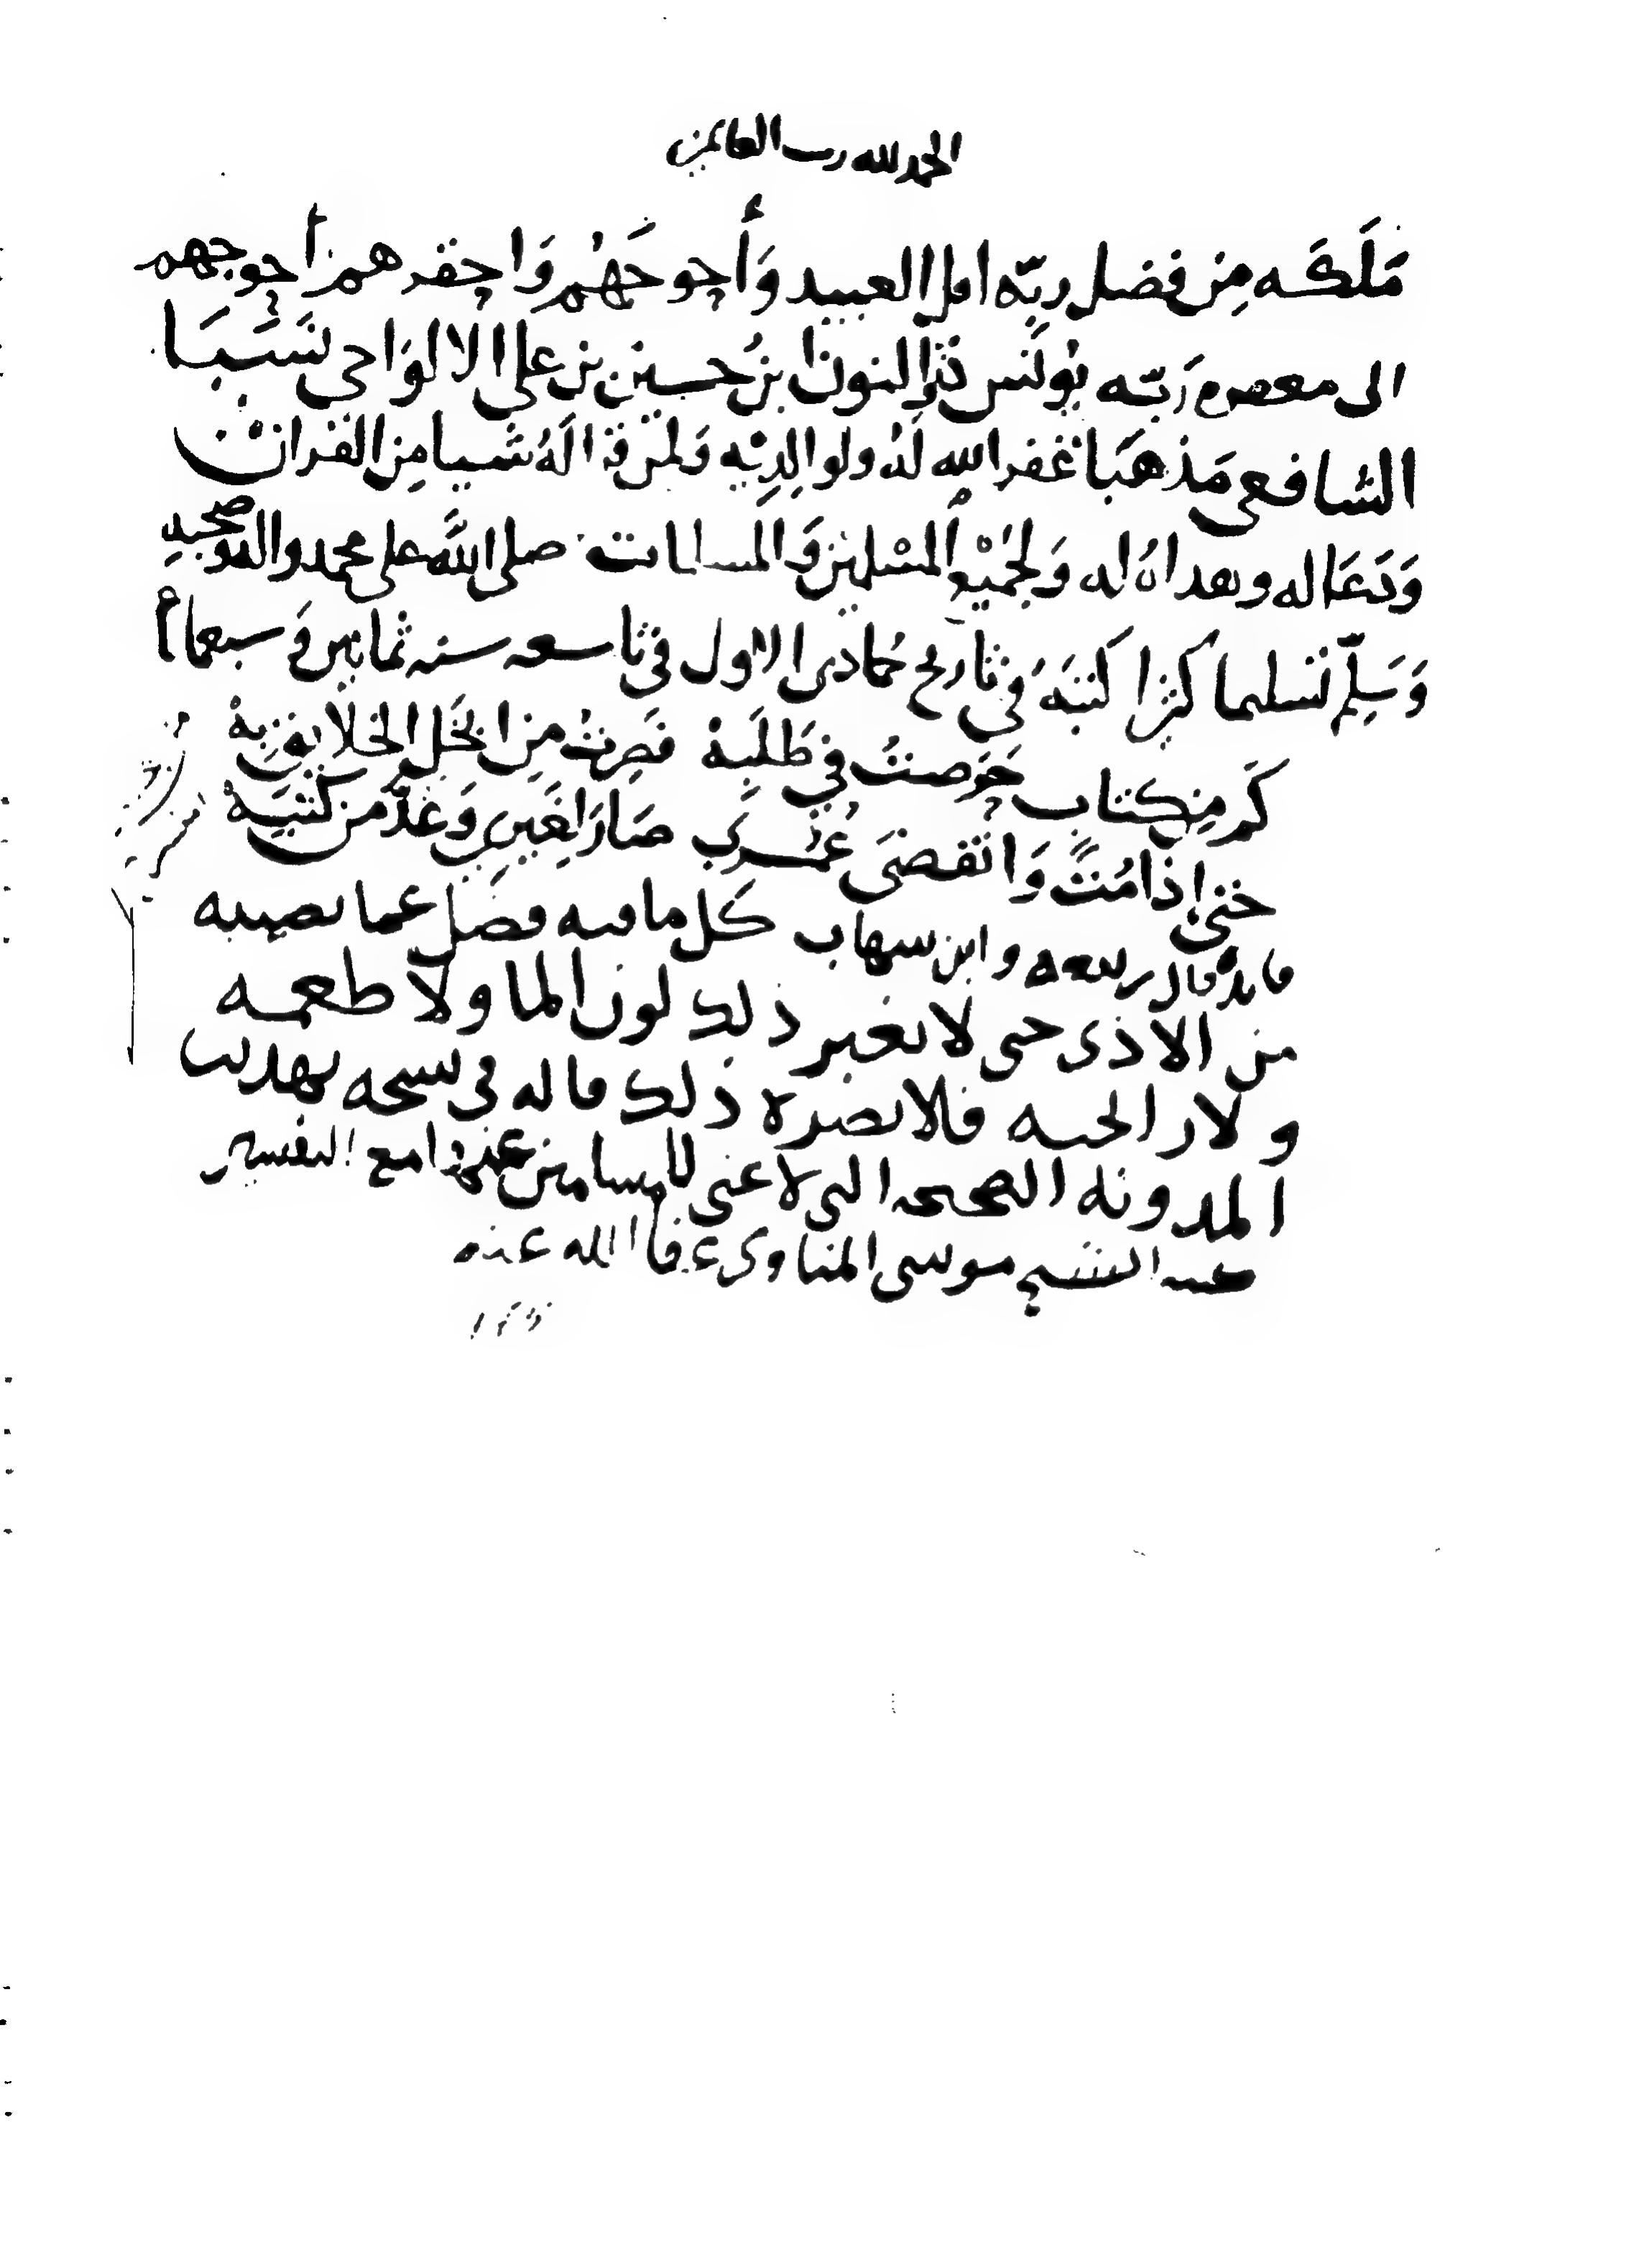 الحمد لله رب العالمين
مَلَكَه مِن فضل ربّه اقل العبيد وَأحوجَهُم وَاحقرهم أحوجهم
الى مغفره رَبّه يونس ذو النون ابن حسين بن على الالواحى نَسَبَا
الشافعى مَذهَبَا غفر الله لهُ ولوالِديْه وَلمن قرا لَهُ شيا مِن القران
وَدَعَا له وهداه له وَلجميْع المسْلمين وَالمسلمات صلى اللَّه على محمد واله وصحبه
وَسَلِّم تسليما كثيرا كتبَهُ في تاريخ جمادى الاول في تاسعه سنه ثمانين وَسبعماه
كَم مِن كتاب حَرَصتُ في طَلَبِهْ فصِرتُ مِن ابخَلِ الخلايق بِهْ
حتى اذا مُتُّ وَانقضىَ عُمْرِي صَارَ لِغَيرِي وَعُدَّ من كُتُبِهْ
فايده قال ربيعه وابن شهاب كل ما فيه فضل عما يصيبه
من الاذى حتى لا يغير ذلك لون الما ولا طعمه
ولا رايحته فلا يضره ذلك قاله في نسخه تهذيب
المدونه الصحيحه التى لا غنى للمسلمين عنها مع التفسير
كتبه الشيخ موسى المناوى عفا الله عنه